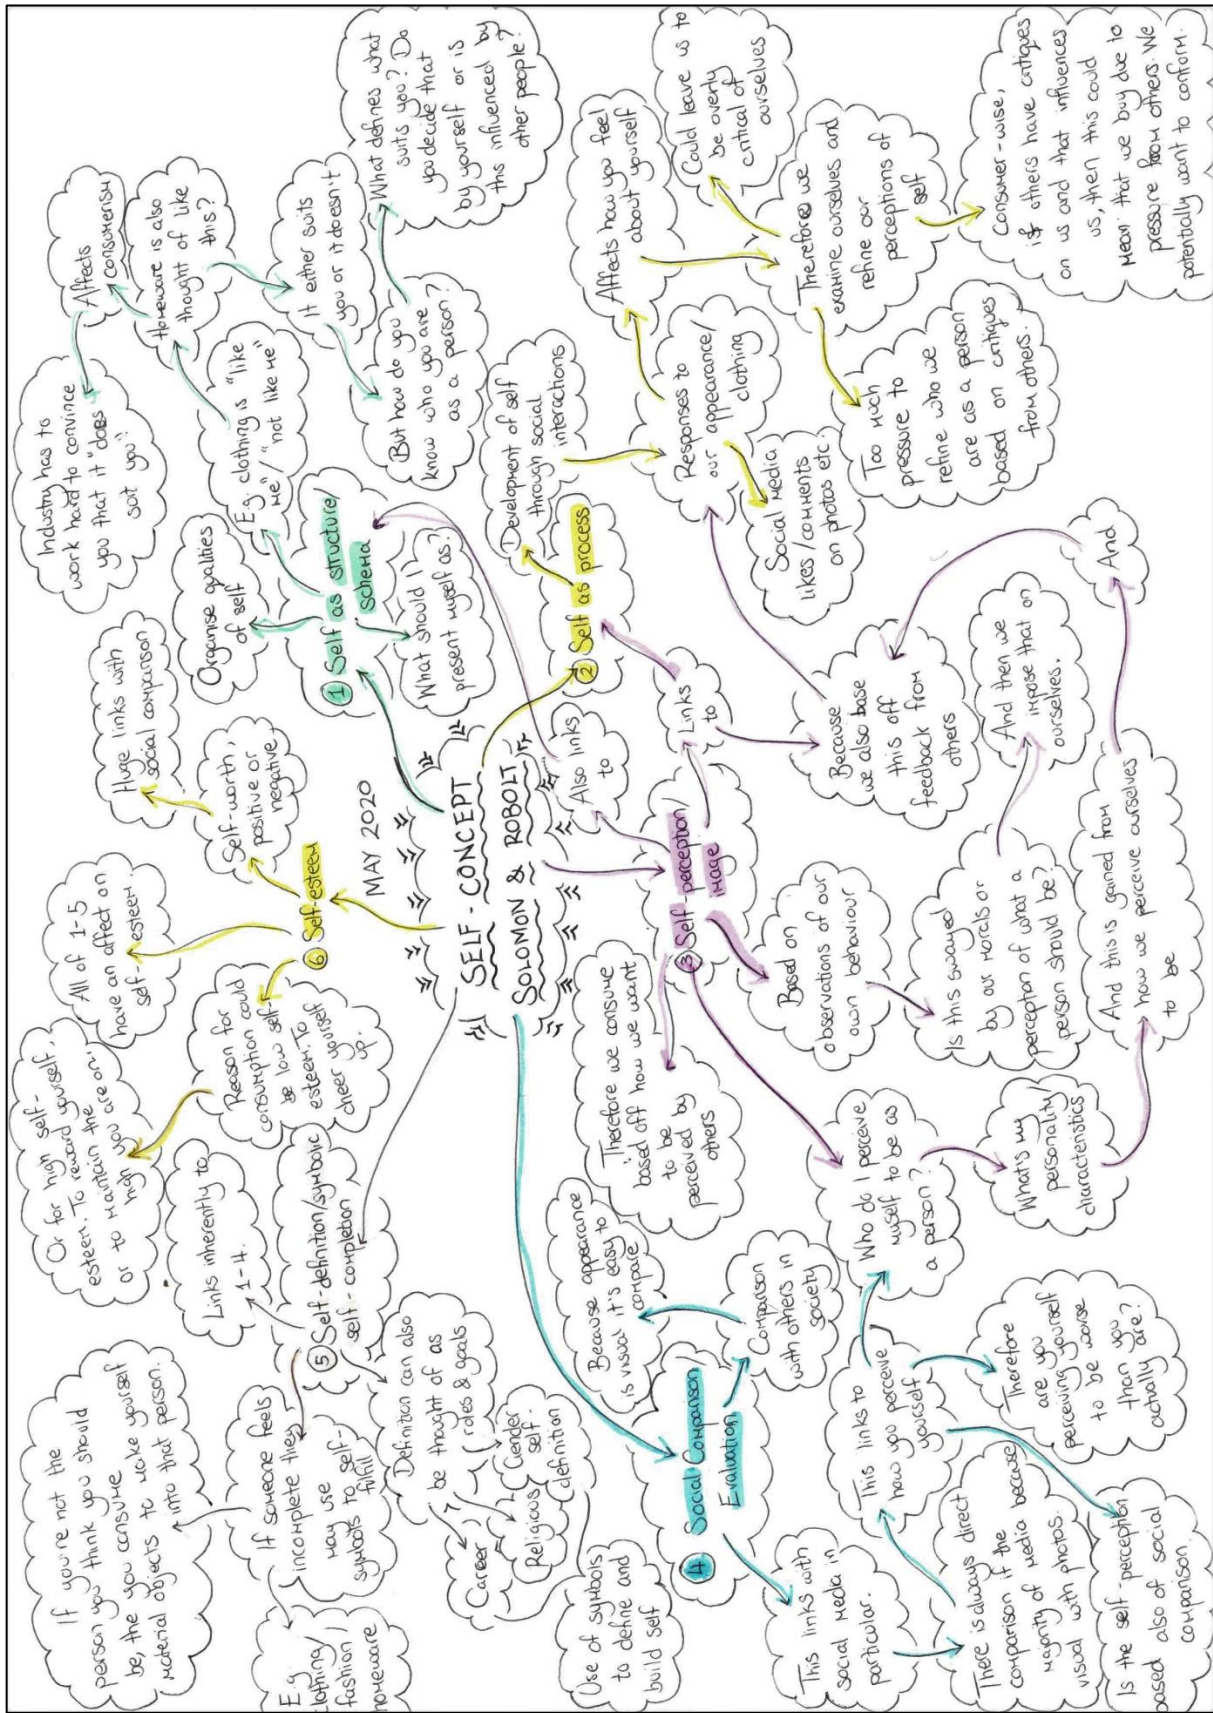 MAY 2020
SELF-CONCEPT
SOLOMON & ROBOLT
① Self as structure
schema
Organise qualities
of self
What should I
present myself as?
E.g. clothing is "like
me"/ "not like me"
Homeware is also
thought of like
this?
Affects
consumerism
Industry has to
work hard to convince
you that it "does
suit you".
It either suits
you or it doesn't
But how do you
know who you are
as a person?
What defines what
suits you? Do
you decide that
by yourself or is
this influenced by
other people?
② Self as process
Development of self
through social
interactions
Responses to
our appearance/
clothing
Social media
likes/comments
on photos etc.
Affects how you feel
about yourself
Therefore we
examine ourselves and
refine our
perceptions of
self
Could leave us to
be overly
critical of
ourselves
Too much
pressure to
refine who we
are as a person
based on critiques
from others.
Consumer-wise,
if others have critiques
on us and that influences
us, then this could
mean that we buy due to
pressure from others. We
potentially want to conform.
③ Self-perception
image
Also links
to
Links
to
Because
we also base
this off
feedback from
others
Therefore we consume
based off how we want
to be
perceived by
others
Based on
observations of our
own behaviour
Is this swayed
by our morals or
perception of what a
person should be?
And then we
impose that on
ourselves.
Who do I perceive
myself to be as
a person?
What's my
personality
characteristics
And this is gained from
how we perceive ourselves
to be
And
④ Social Comparison
Evaluation
Comparison
with others in
society
Because appearance
is visual it's easy to
compare
This links with
social media in
particular.
There is always direct
comparison if the
majority of media because
visual with photos.
This links to
how you perceive
yourself
Therefore
are you
perceiving yourself
to be worse
than you
actually are?
Is the self-perception
based also of social
comparison.
⑤ Self-definition/symbolic
self-completion
Links inherently to
1-4.
If someone feels
incomplete they
may use
symbols to self-
fulfill
If you're not the
person you think you should
be, the you consume
material objects to make yourself
into that person.
E.g.
clothing/
fashion
homeware
Definition can also
be thought of as
roles & goals
Career
Religious
Gender
self-
definition
Use of symbols
to define and
build self
⑥ Self-esteem
Self-worth,
positive or
negative
Huge links with
social comparison
All of 1-5
have an affect on
self-esteem.
Reason for
consumption could
be low self-
esteem. To
cheer yourself
up.
Or for high self-
esteem. To reward yourself,
or to maintain the
high you are on.